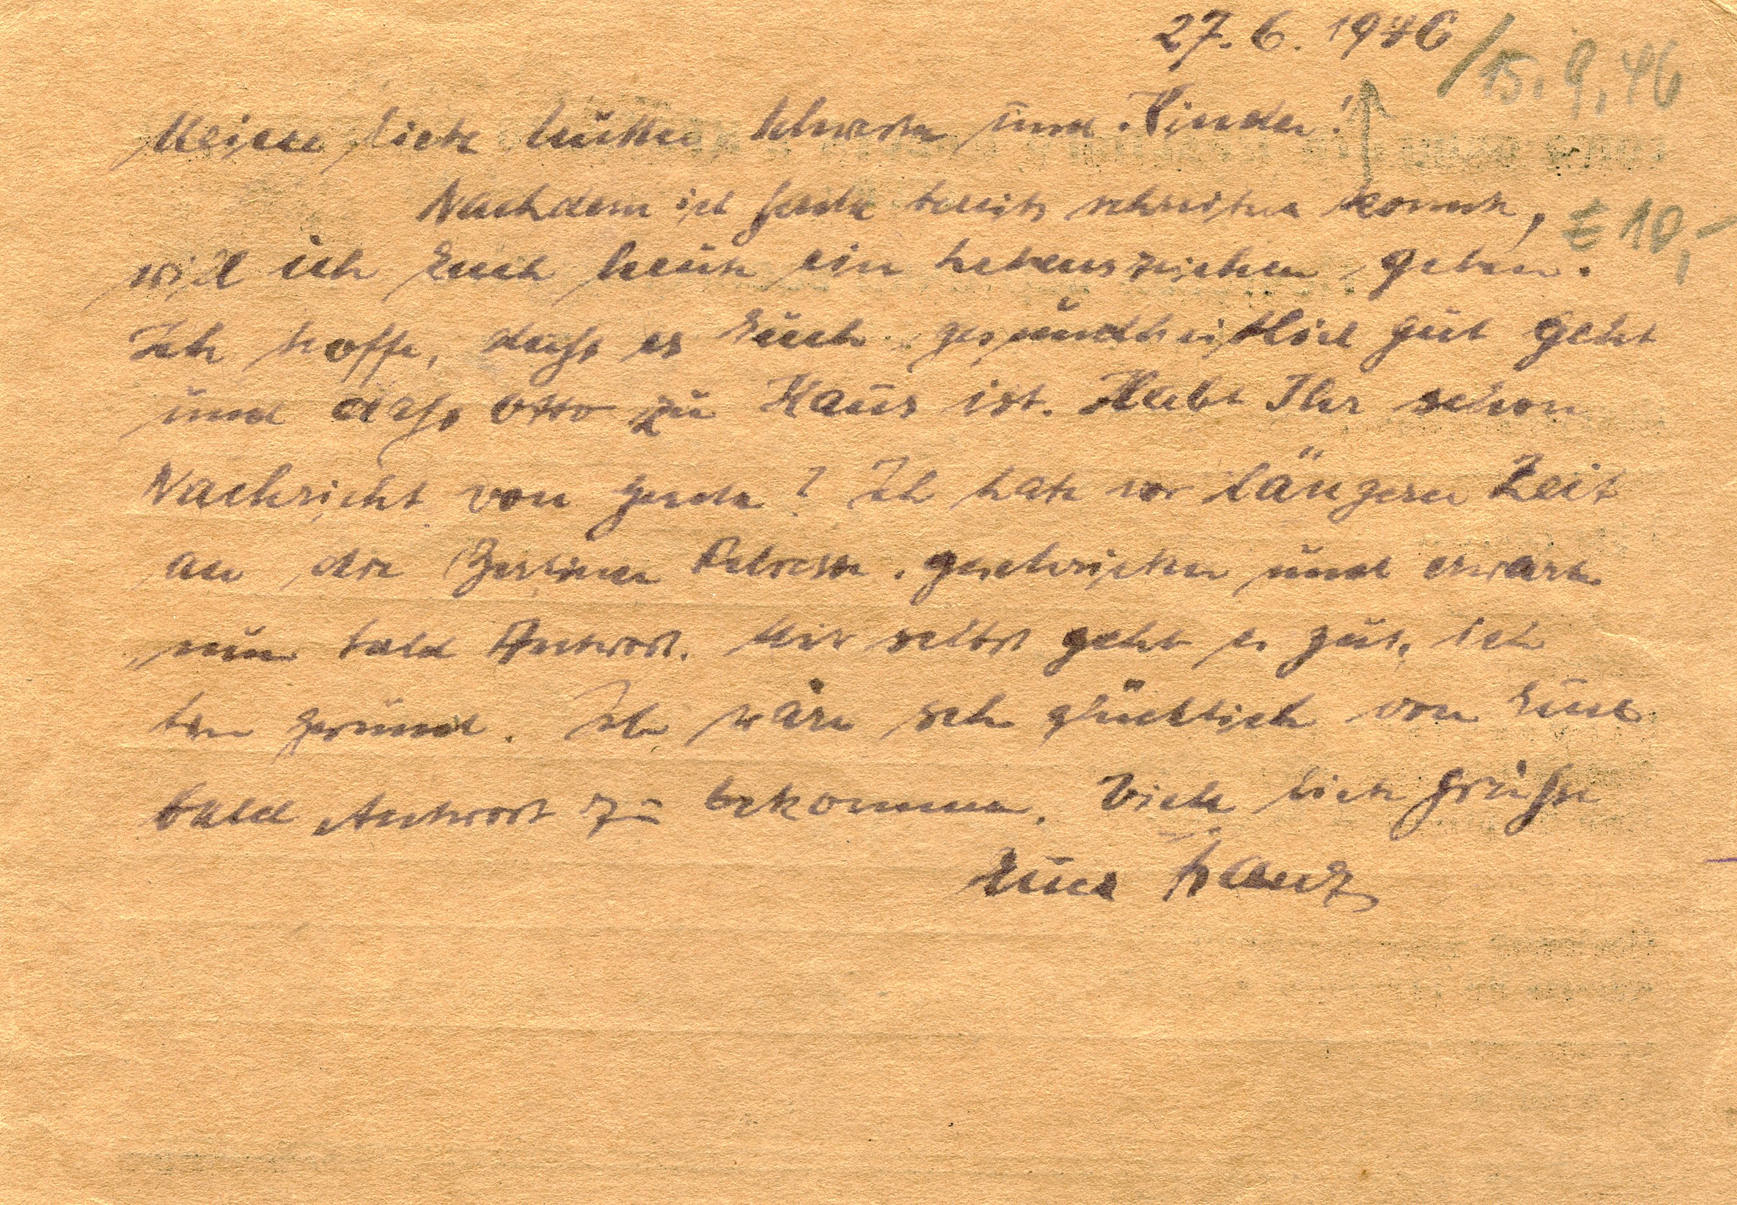 27.6.1946 / 15.9.46
Meine liebe Mutter, Schwester und Kinder!
Nachdem ich Gerda bereits schreiben konnte,
will ich Euch heute ein Lebenszeichen geben.
€ 10,-
Ich hoffe, dass es Euch gesundheitlich gut geht
und dass Otto zu Haus ist. Habt Ihr schon
Nachricht von Gerda? Ich habe vor längerer Zeit
an die Berliner Adresse geschrieben und erwarte
nun bald Antwort. Mir selbst geht es gut, ich
bin gesund. Ich wäre sehr glücklich von Euch
bald Antwort zu bekommen. Viele liebe Grüsse
Euer Franz